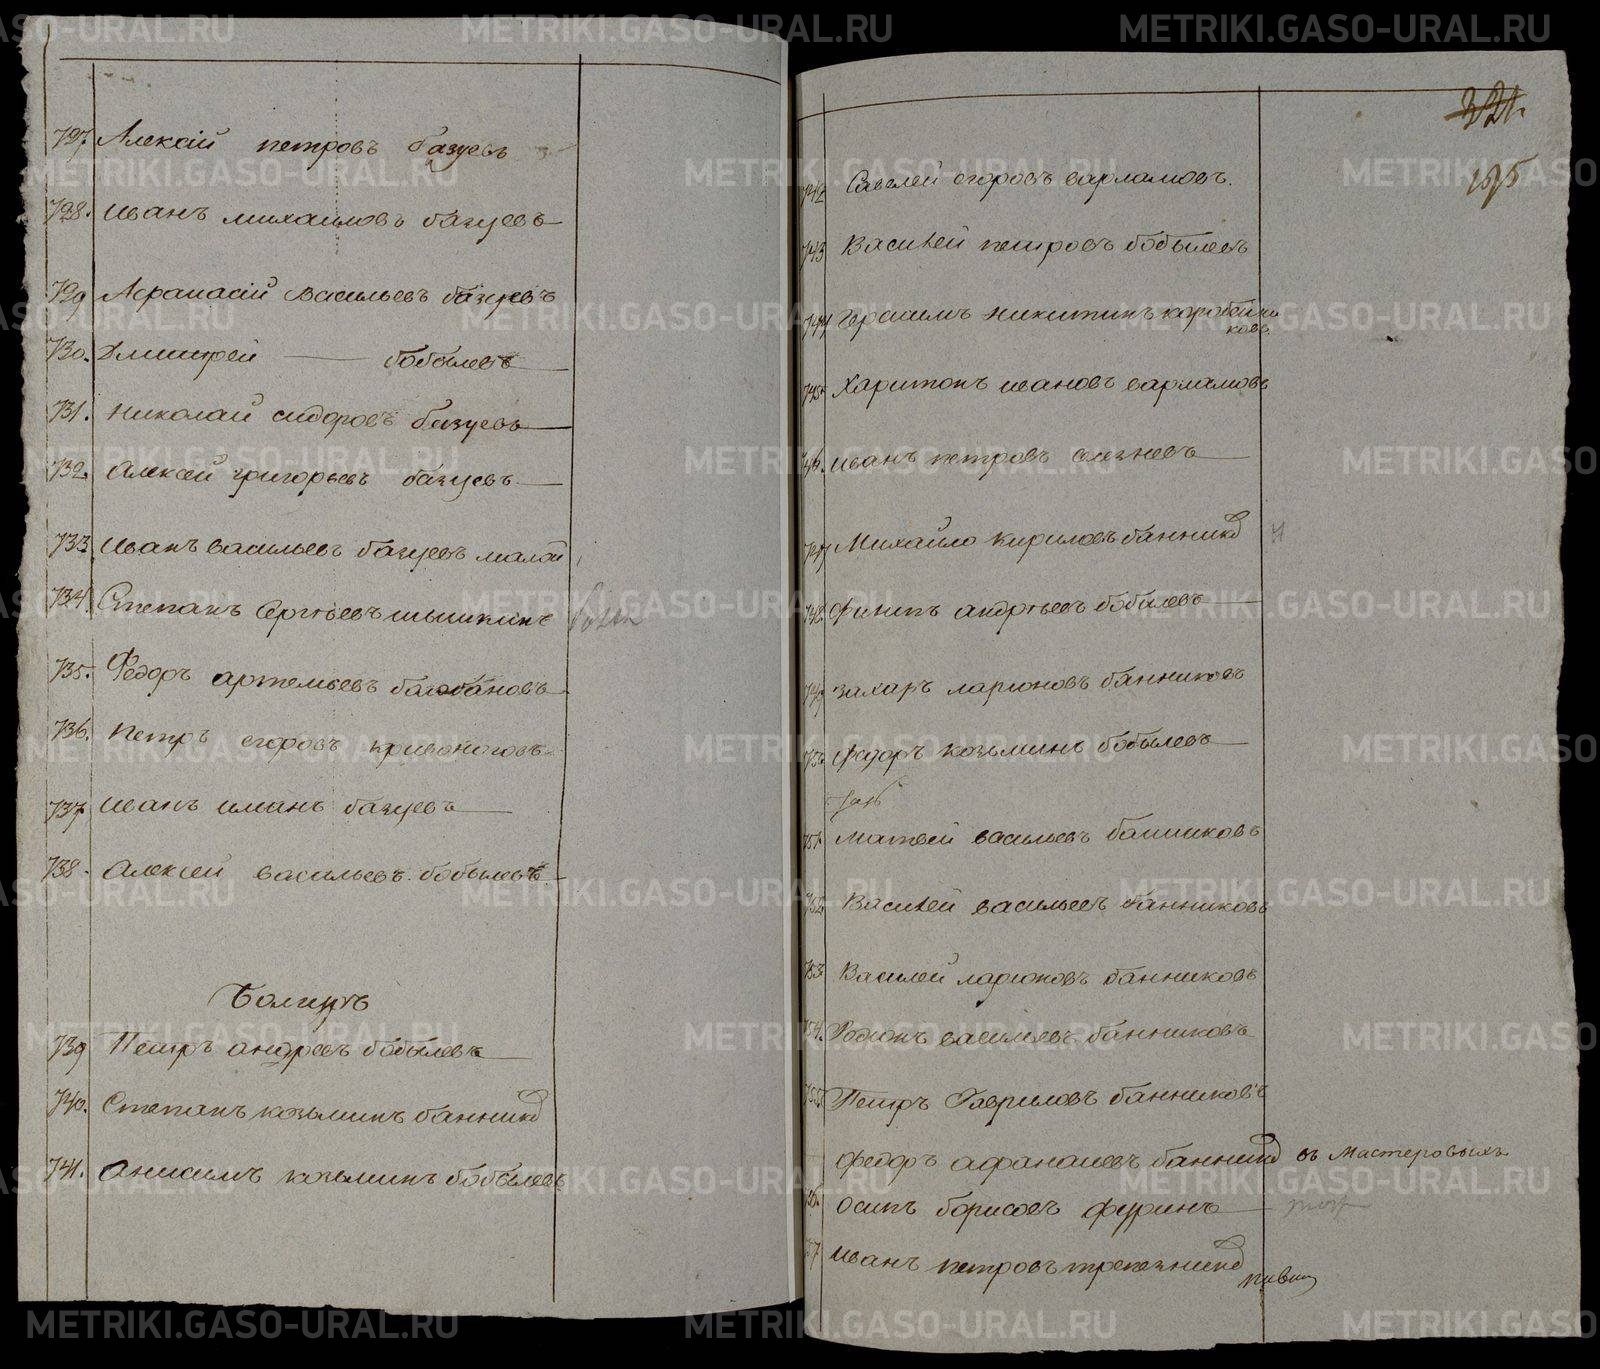 727. Алексѣй петровъ базуевъ
728. иванъ михаиловъ базуевъ
729 Афанасій васильевъ базуевъ
730. Дмитрей — бобылевъ
731. николай сидоровъ базуевъ
732. алексѣй григорьевъ базуевъ
733 иванъ васильевъ базуевъ малой
734. Степанъ Сергѣевъ шышкинъ
735. Федоръ артемьевъ балобановъ
736. петръ егоровъ кривоноговъ
737. иванъ базуевъ
738. алексей васильевъ бобылевъ
739 Петръ андреевъ бобылевъ
740. Степанъ козьминъ банник
741. анисимъ козьминъ бобылевъ
321.
742 Савелей егоровъ варламовъ.
743 василей петровъ бобылевъ
744 герасимъ никитинъ коробейни
ковъ
745. харитонъ ивановъ варламовъ
746. иванъ петровъ
747 Михайло кириловъ банник
748 филипъ андрѣевъ бобылевъ
749 захаръ ларионовъ банниковъ
750. федоръ козьминъ бобылевъ
751. матвей васильевъ банниковъ
752. василей васильевъ банниковъ
753 василей ларионовъ банниковъ
754. Родионъ васильевъ банниковъ
755. Петръ Гавриловъ банниковъ
федоръ афанасиевъ банник въ мастеровыхъ
осипъ борисовъ фуринъ
иванъ петровъ
METRIKI.GASO-URAL.RU